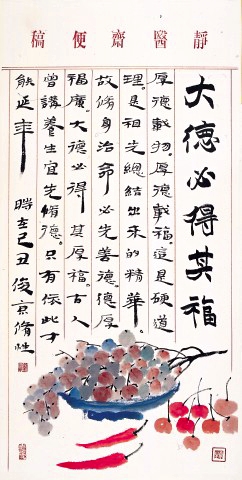 靜醫齋便稿
大德必得其福
厚德載物。厚德載福。這是硬道
理。是祖先總結出來的精華。
故脩身治命必先善德。德厚
福廣。大德必得其厚福。古人
曾講養生宜先脩德。只有依此才
能延年
時在己丑